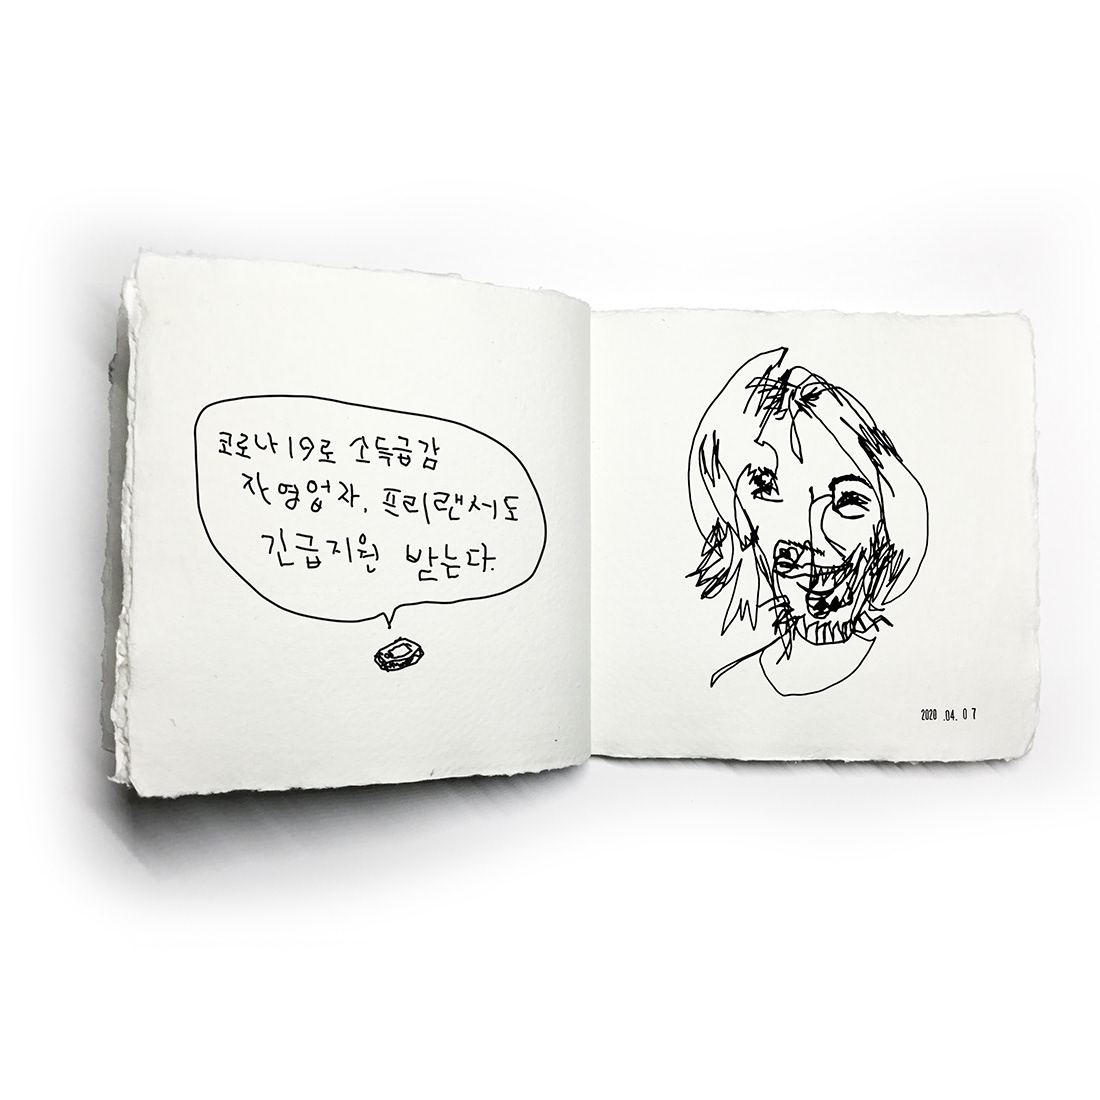 코로나19로 소득급감
자영업자, 프리랜서도
긴급지원 받는다.
2020 .04. 07